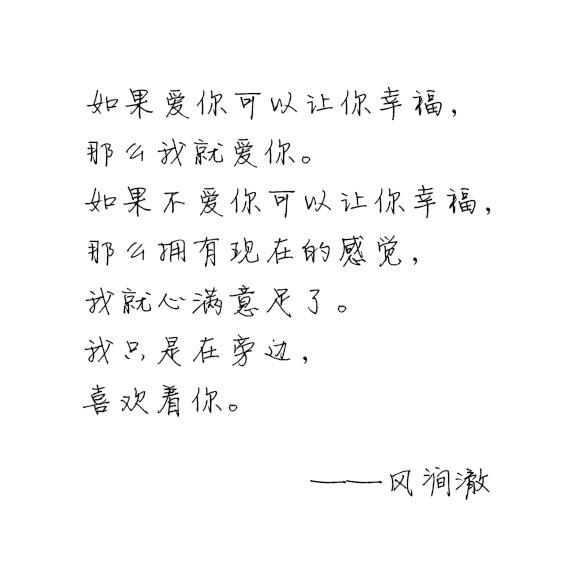 如果爱你可以让你幸福，
那么我就爱你。
如果不爱你可以让你幸福，
那么拥有现在的感觉，
我就心满意足了。
我只是在旁边，
喜欢看你。
——风涧澈